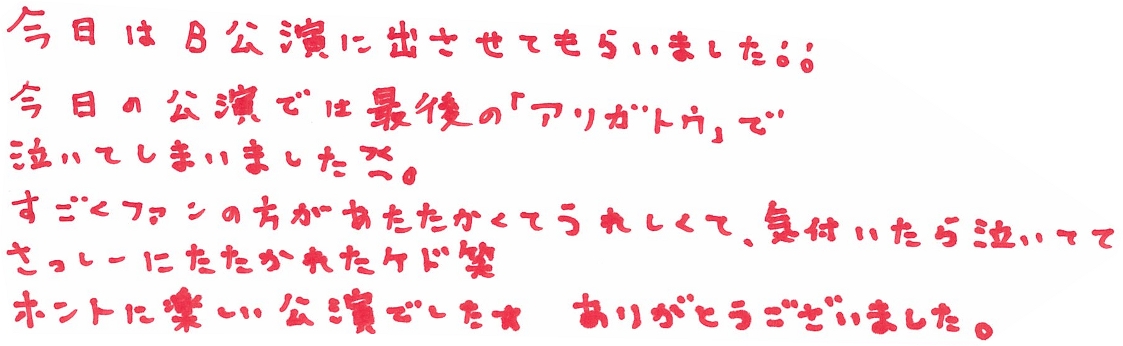 今日はB公演に出させてもらいました!!
今日の公演では最後の「アリガトウ」で
泣いてしまいました。
すごくファンの方があたたかくてうれしくて、気付いたら泣いてて
さっしーにたたかれたケド笑
ホントに楽しい公演でした★ ありがとうございました。